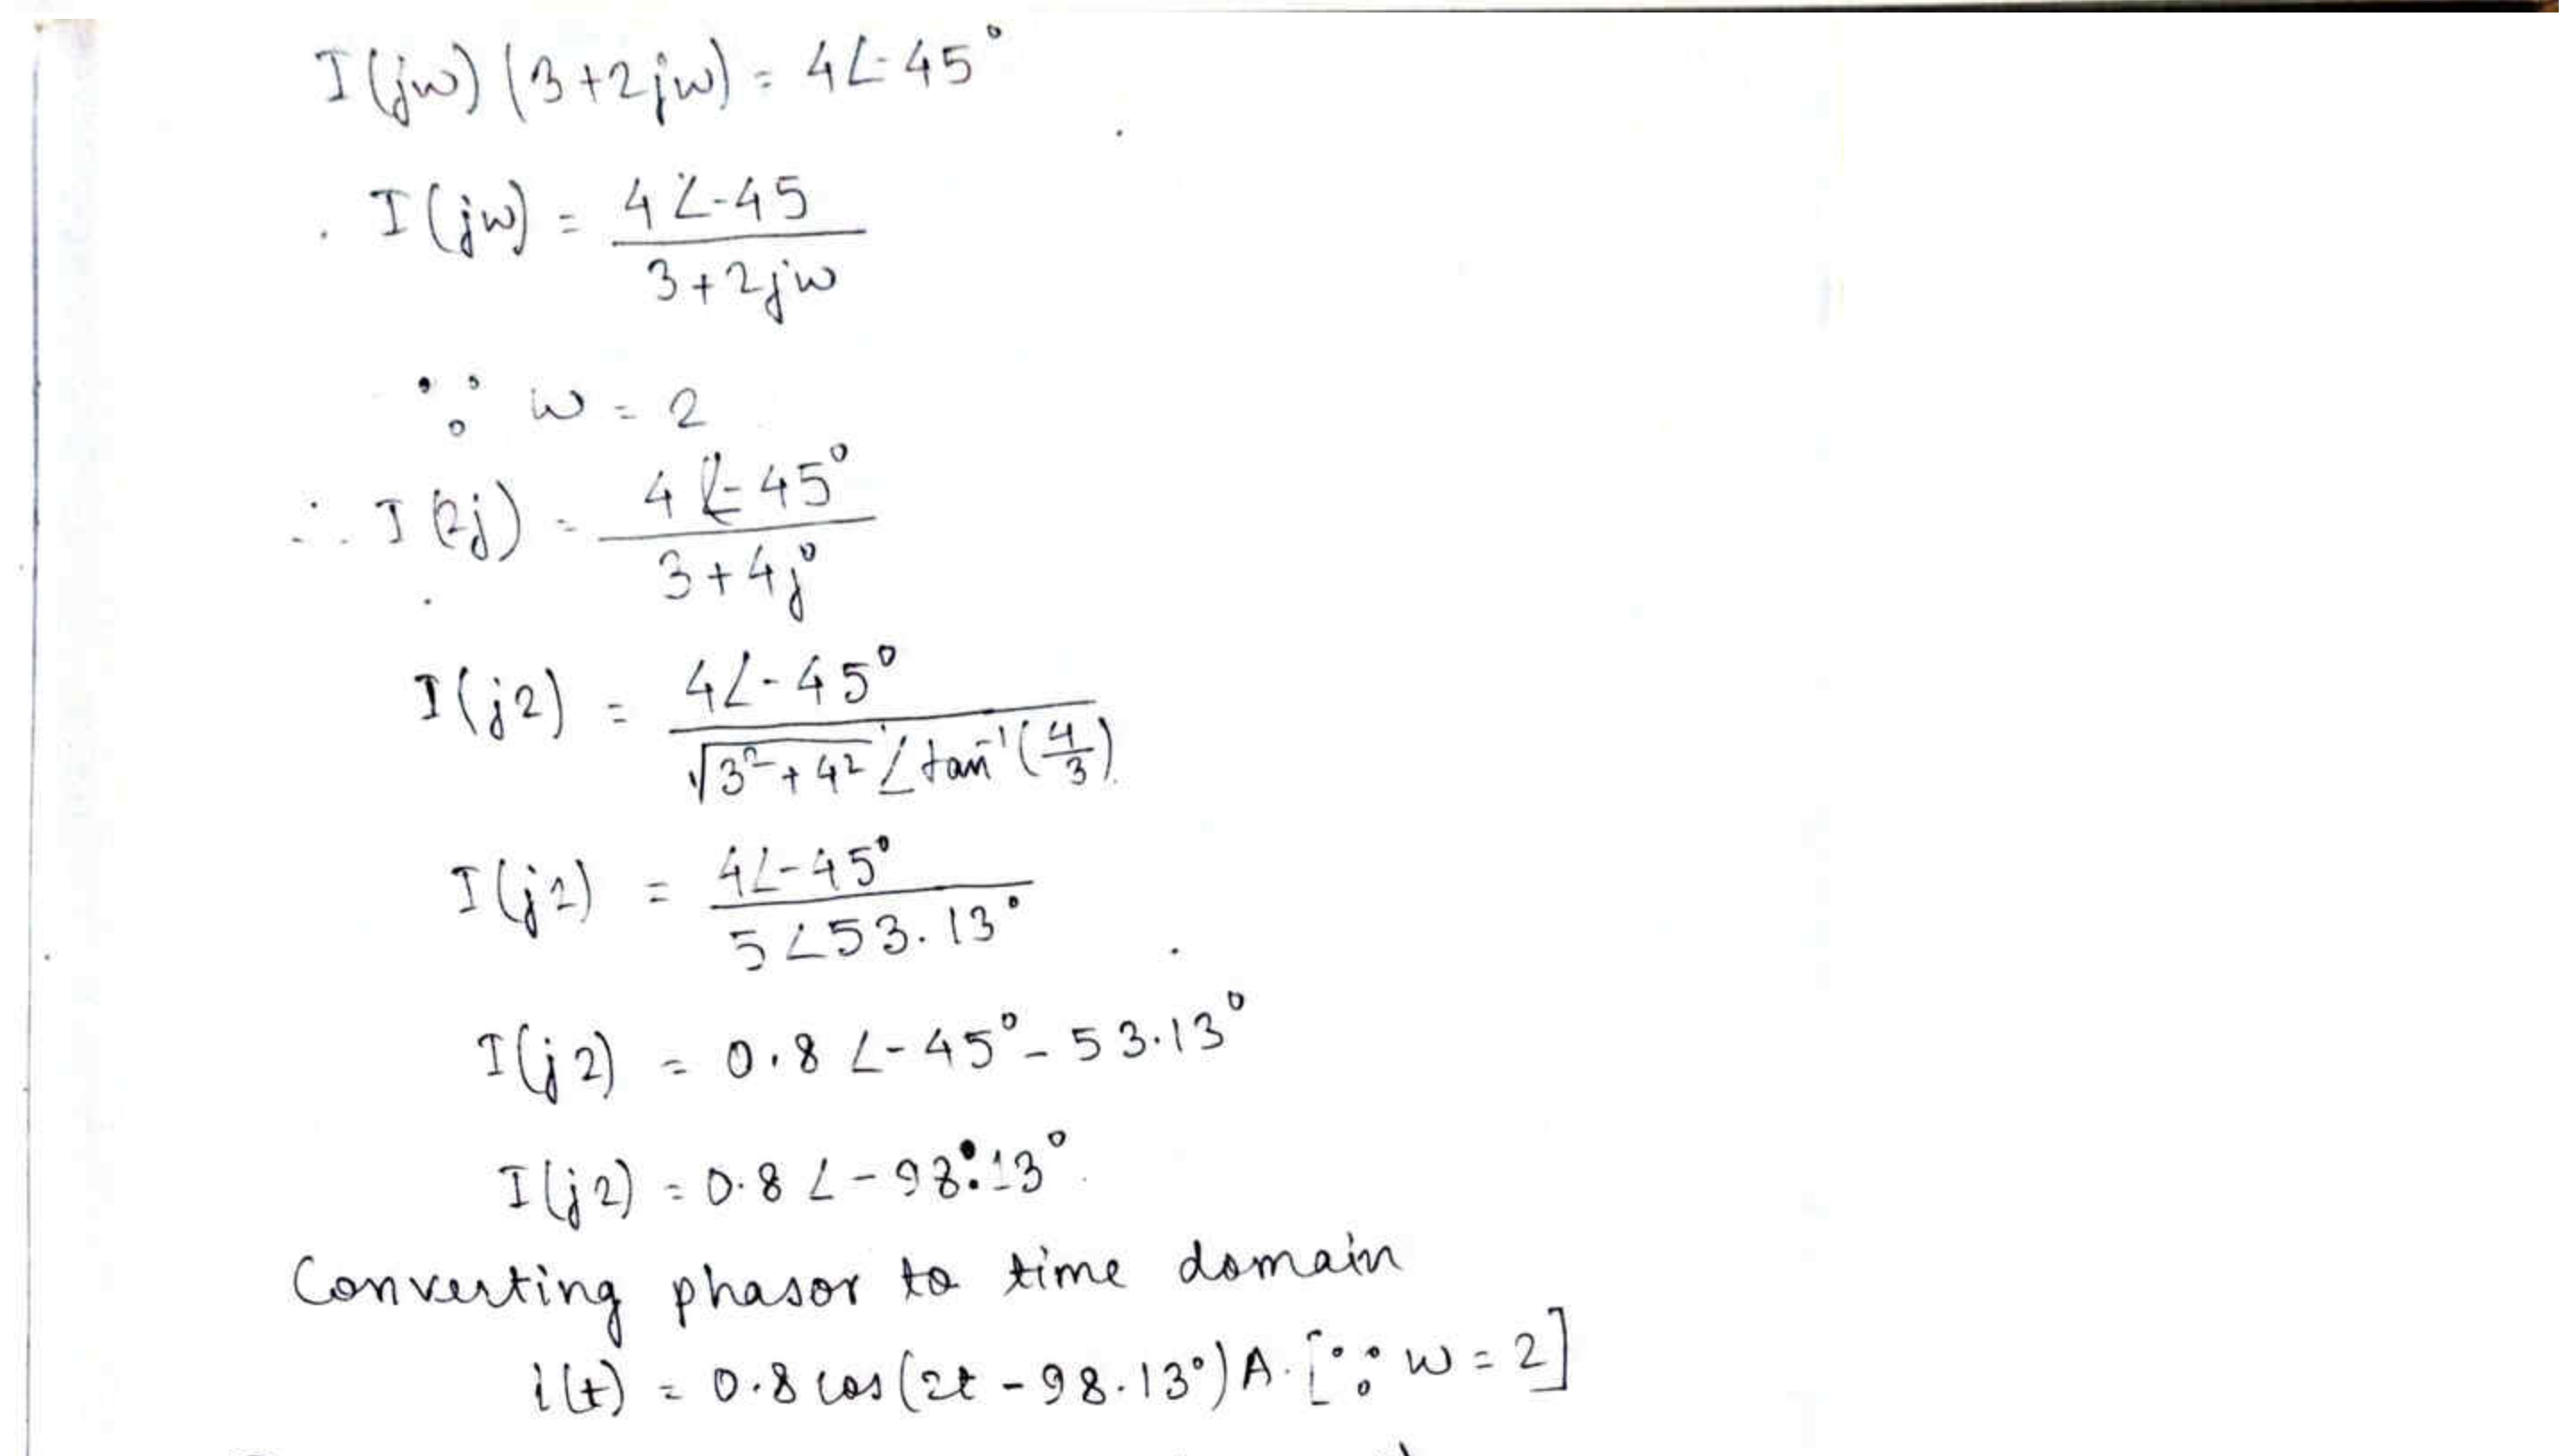 I(jw)(3+2jw) = 4∠-45°
I(jw) = 4∠-45 / 3+2jw
∵ w = 2
∴ I(2j) = 4∠-45° / 3+4j
I(j2) = 4∠-45° / √3²+4² ∠tan⁻¹(4/3)
I(j2) = 4∠-45° / 5∠53.13°
I(j2) = 0.8∠-45°-53.13°
I(j2) = 0.8∠-98.13°
Converting phasor to time domain
i(t) = 0.8 cos(2t - 98.13°) A. [∵ w = 2]